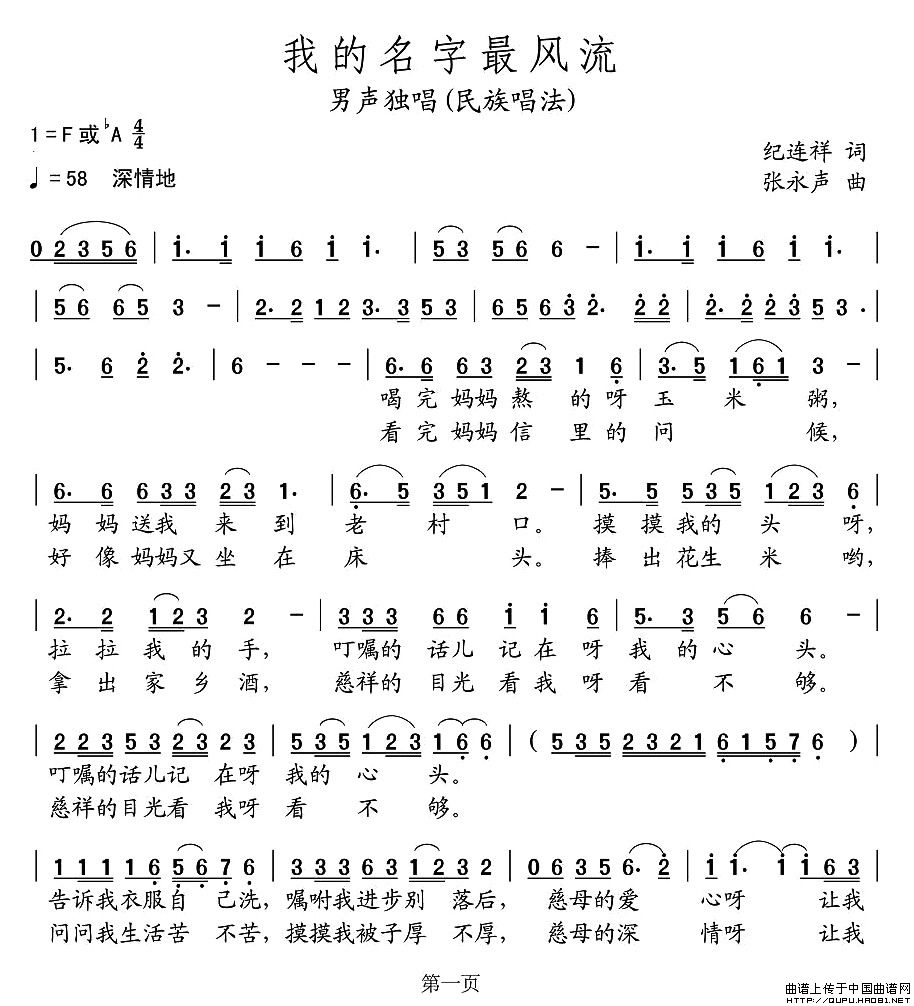 我的名字最风流
男声独唱(民族唱法)
1=F或♭A 4/4
纪连祥 词
♩=58 深情地
张永声 曲
0 2 3 5 6 | i· i i 6 i i· | 5 3 5 6 6 – | i· i i 6 i i· |
| 5 6 6 5 3 – | 2· 2 1 2 3· 3 5 3 | 6 5 6 3 2· 2 2 | 2· 2 2 3 5 3· |
| 5· 6 2 2· | 6 – – – | 6· 6 6 3 2 3 1 6 | 3· 5 1 6 1 3 – |
喝完妈妈熬的呀玉米粥,
看完妈妈信里的问候,
| 6· 6 6 3 3 2 3 1· | 6· 5 3 5 1 2 – | 5· 5 5 3 5 3 2 3 6 |
妈妈送我来到老村口。摸摸我的头呀,
好像妈妈又坐在床头。捧出花生米哟,
| 2· 2 1 2 3 2 – | 3 3 3 6 6 i i 6 | 5· 3 5 6 6 – |
拉拉我的手,叮嘱的话儿记在呀我的心头。
拿出家乡酒,慈祥的目光看我呀看不够。
| 2 2 3 5 3 2 3 2 2 | 5 3 5 1 2 3 1 6 6 | ( 5 3 5 2 3 2 1 6 1 5 7 6 ) |
叮嘱的话儿记在呀我的心头。
慈祥的目光看我呀看不够。
| 1 1 1 1 6 5 6 7 6 | 3 3 3 6 3 1 2 3 2 | 0 6 3 5 6· 2 | i i· i i 6 3 |
告诉我衣服自己洗,嘱咐我进步别落后,慈母的爱心呀让我
问问我生活苦不苦,摸摸我被子厚不厚,慈母的深情呀让我
第一页
曲谱上传于中国曲谱网
HTTP://QUPU.HAO81.NET